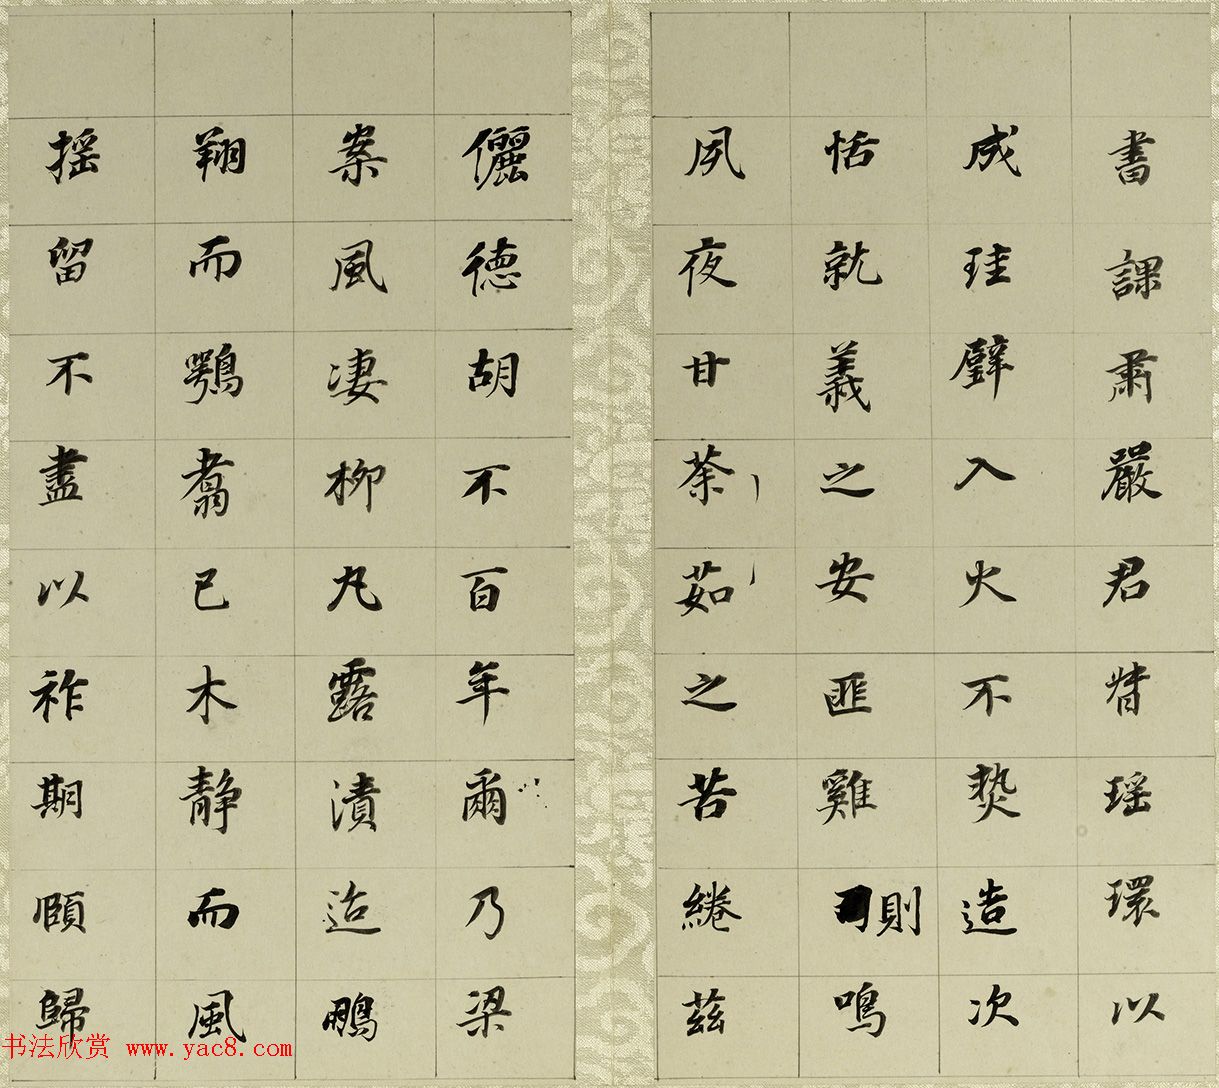 書課肅嚴君胥瑶環以
成珪璧入火不爇造次
恬就義之安匪雞則鳴
夙夜甘荼茹之苦綣茲
儷德胡不百年爾乃梁
案風凄柳丸露漬迨鵬
翔而鶚翥已木靜而風
摇留不盡以祚期頤歸
书法欣赏 www.yac8.com